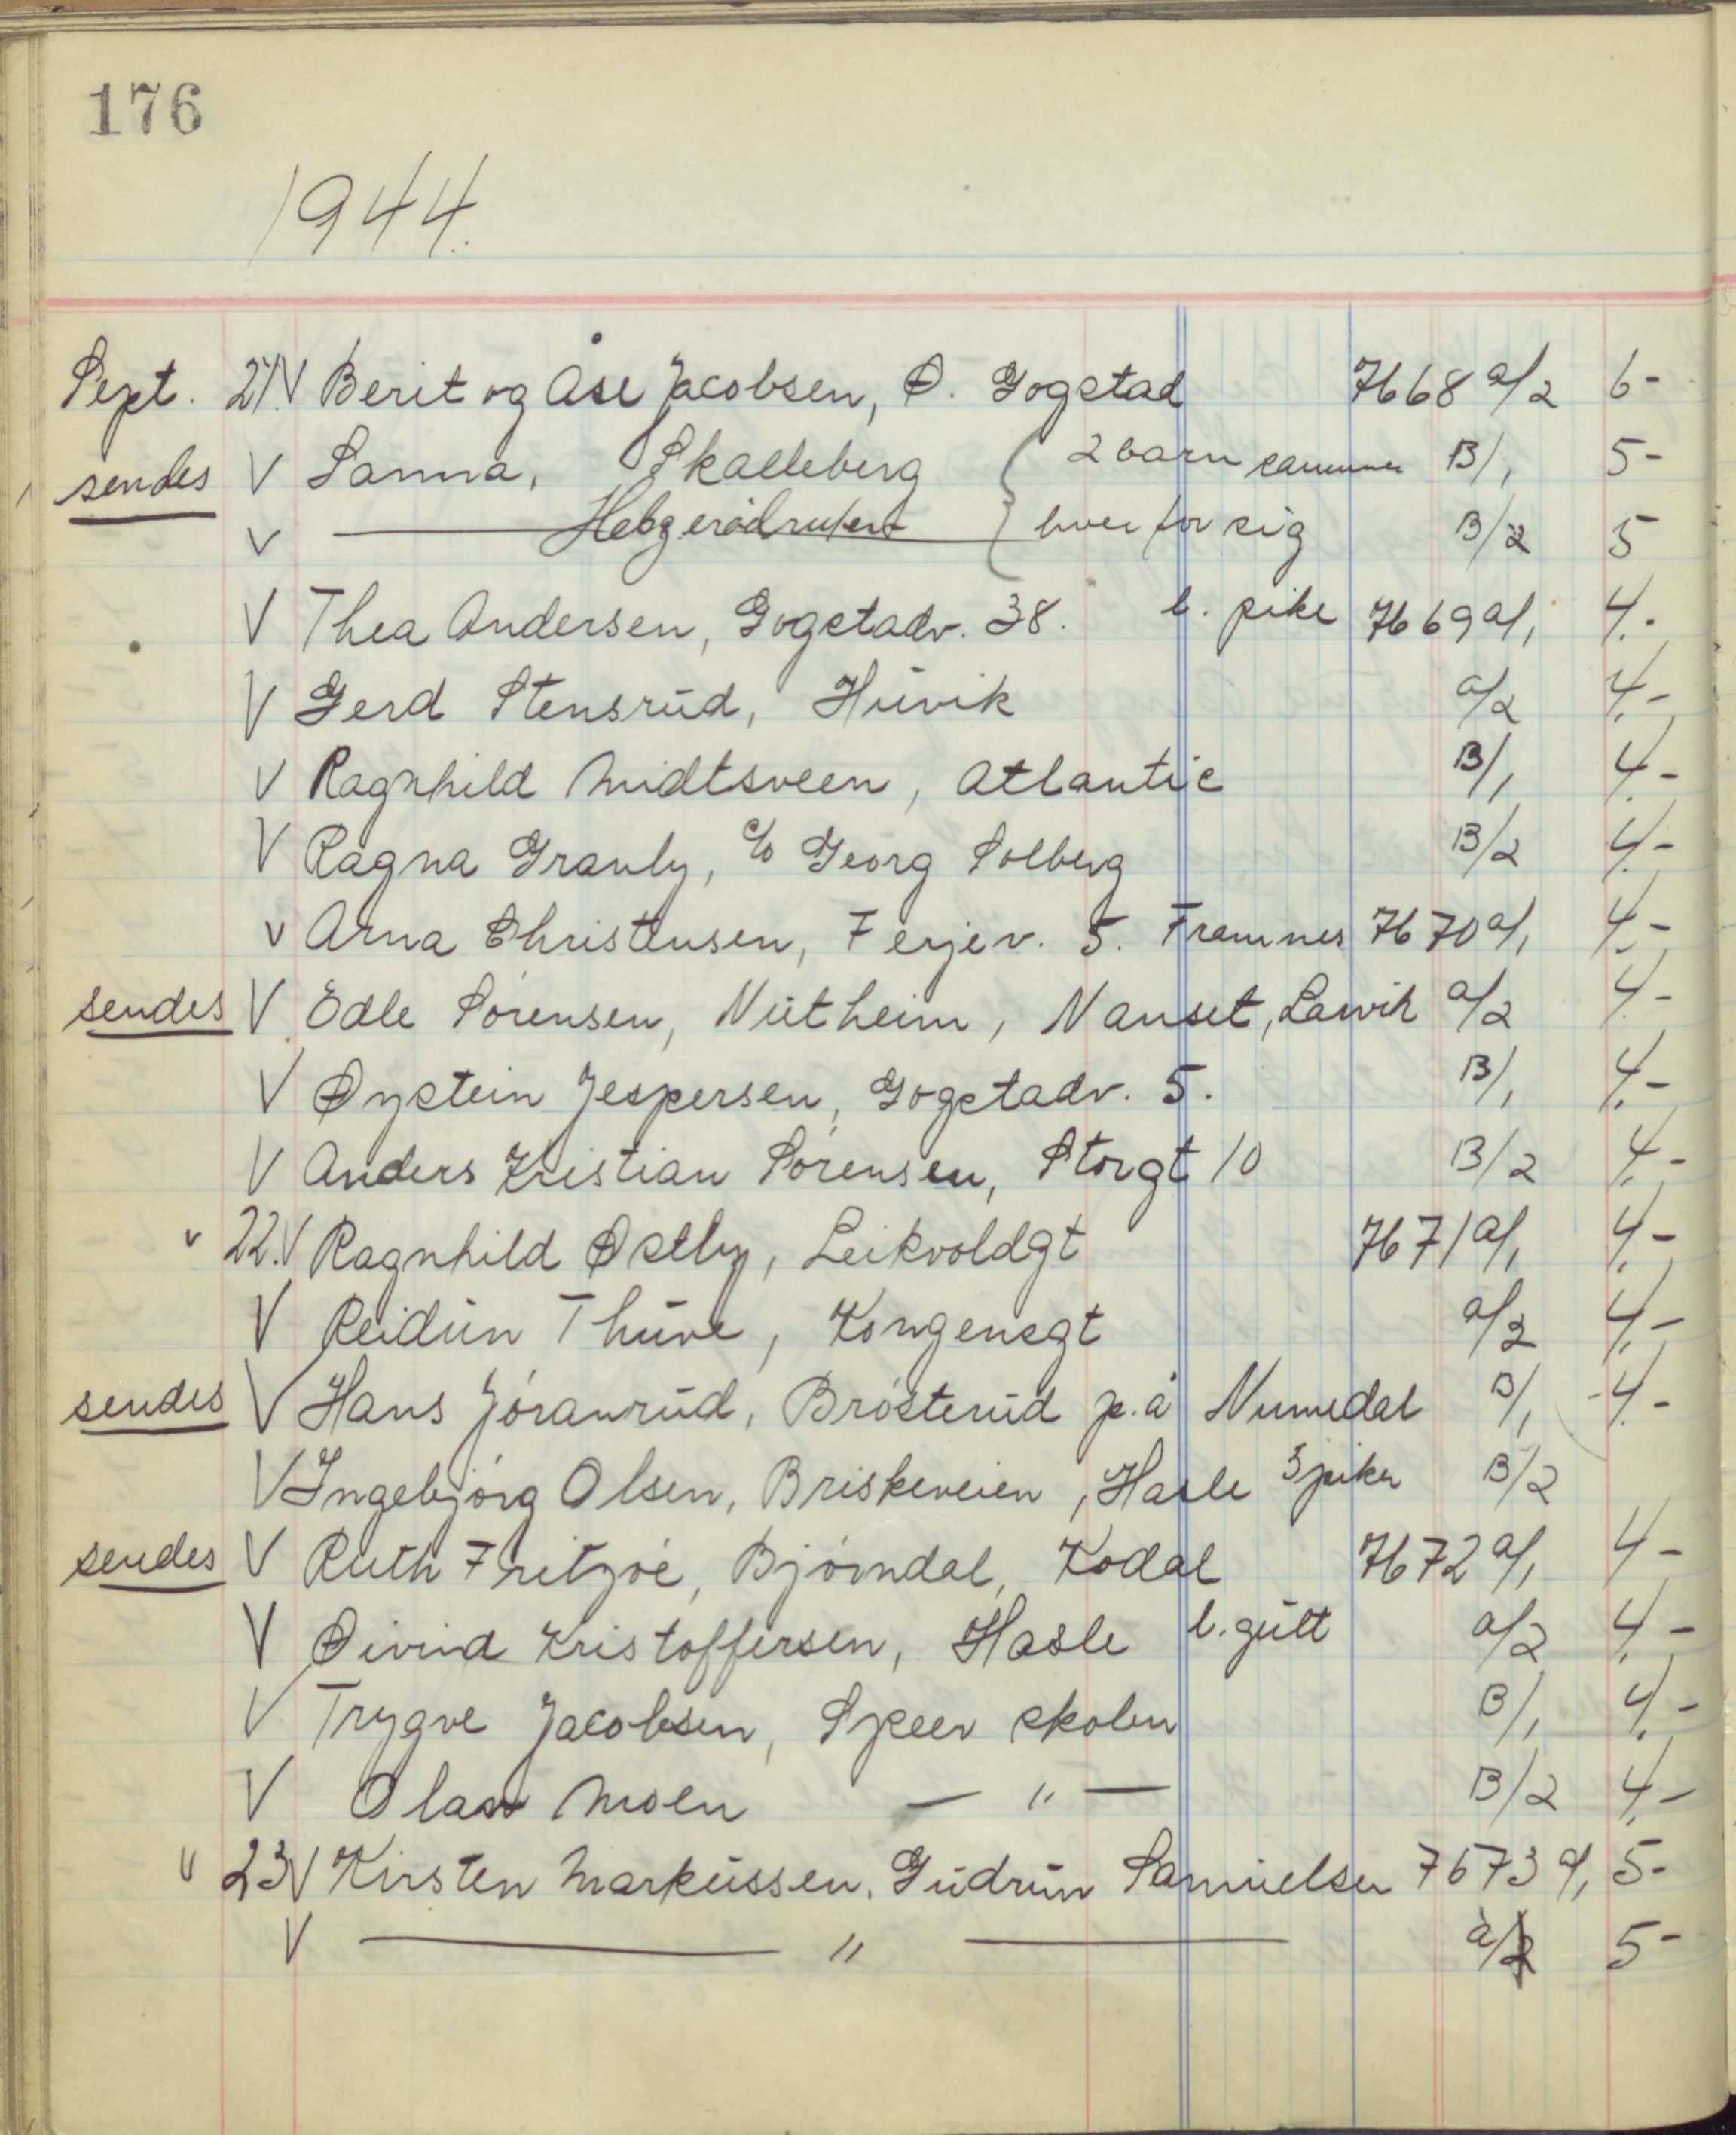 176
1944.
Sept. 21. V Berit og Åse Jacobsen, Ø. Gogstad 7668 a/2 6-
sendes V Sanna, Skalleberg { 2 barn sammen B/1 5-
V Hebgerødruten } hver for sig B/2 5
V Thea Andersen, Gogstadv. 38. l. pike 7669 a/1 4.-
V Gerd Stensrud, Huvik a/2 4.-
V Ragnhild Midtsveen, Atlantic B/1 4.-
V Ragna Granly, c/o Georg Solberg B/2 4.-
V Arna Christensen, Ferjev. 5. Framnes 7670 a/1 4.-
sendes V Edle Sørensen, Nutheim, Nanset, Larvik a/2 4.-
V Øystein Jespersen, Gogstadv. 5. B/1 4.-
V Anders Kristian Sørensen, Storgt 10 B/2 4.-
" 22. V Ragnhild Østby, Leikvoldgt 7671 a/1 4.-
V Reidun Thuve, Kongensgt a/2 4.-
sendes V Hans Jóranrud, Brøsterud p.å Numedal B/1 4.-
V Ingebjørg Olsen, Briskeveien, Hasle 3 piker B/2
sendes V Ruth Fritzøe, Bjørndal, Kodal 7672 a/1 4-
V Øivind Kristoffersen, Hasle l. gutt a/2 4.-
V Trygve Jacobsen, Speer skolen B/1 4.-
V Olav Moen — " — B/2 4.-
" 23 V Kirsten Markussen, Gudrun Samuelsen 7673 a/1 5-
V — " — a/2 5-